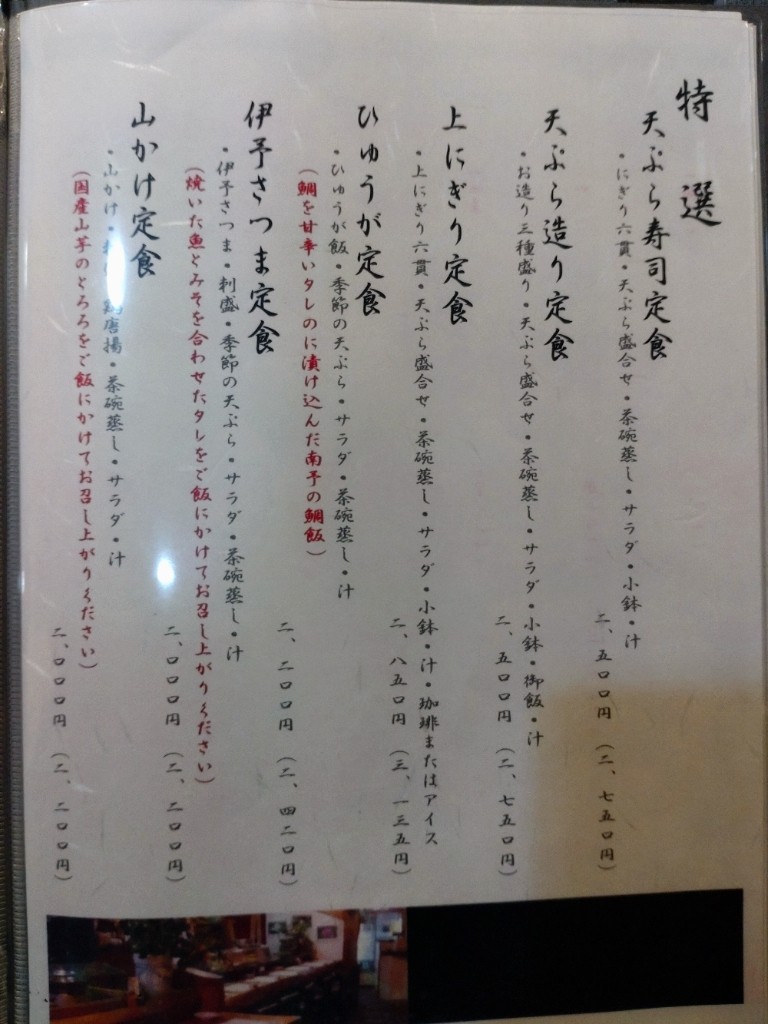 特選
天ぷら寿司定食
・にぎり六貫・天ぷら盛合せ・茶碗蒸し・サラダ・小鉢・汁
二、五〇〇円（二、七五〇円）
天ぷら造り定食
・お造り三種盛り・天ぷら盛合せ・茶碗蒸し・サラダ・小鉢・御飯・汁
二、五〇〇円（二、七五〇円）
上にぎり定食
・上にぎり六貫・天ぷら盛合せ・茶碗蒸し・サラダ・小鉢・汁・珈琲またはアイス
二、八五〇円（三、一三五円）
ひゅうが定食
・ひゅうが飯・季節の天ぷら・サラダ・茶碗蒸し・汁
（鯛を甘辛いタレのに漬け込んだ南予の鯛飯）
二、二〇〇円（二、四二〇円）
伊予さつま定食
・伊予さつま・刺盛・季節の天ぷら・サラダ・茶碗蒸し・汁
（焼いた魚とみそを合わせたタレをご飯にかけてお召し上がりください）
二、〇〇〇円（二、二〇〇円）
山かけ定食
・山かけ・鶏唐揚・茶碗蒸し・サラダ・汁
（国産山芋のとろろをご飯にかけてお召し上がりください）
二、〇〇〇円（二、二〇〇円）